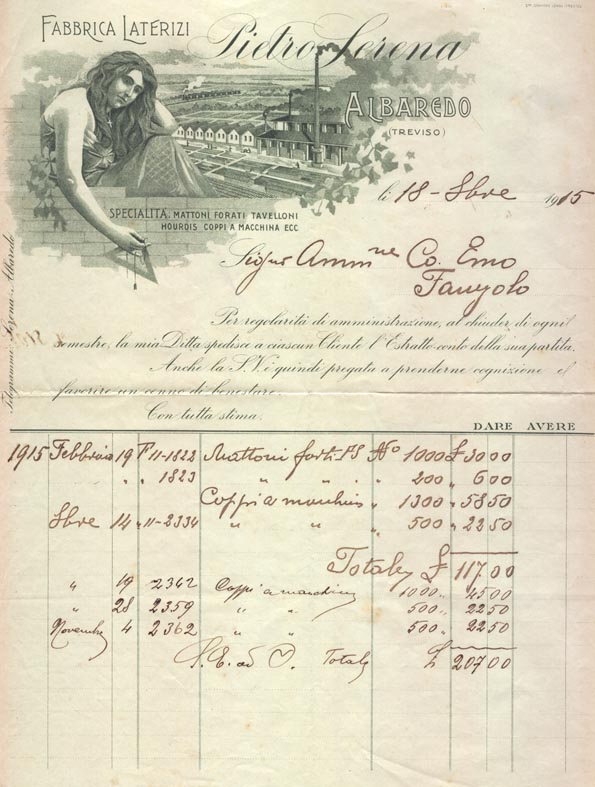 FABBRICA LATERIZI
Pietro Serena
ALBAREDO
(TREVISO)
SPECIALITÀ. MATTONI FORATI TAVELLONI
HOURDIS COPPI A MACCHINA ECC
li 18 - Sbre 1915
Sigur Ammne Co. Emo
Fanzolo
Per regolarità di amministrazione, al chiuder di ogni
semestre, la mia Ditta spedisce a ciascun Cliente l'Estratto conto della sua partita.
Anche la S.V. è quindi pregata a prenderne cognizione e
favorire un cenno di benestare.
Con tutta stima.
Telegrammi: Serena - Albaredo
DARE AVERE
1915 Febbraio 19 F 11-1822 Mattoni No 1000 £ 30 00
" " 1823 " " " 200 " 6 00
Coppi a macchina 1300 " 58 50
Sbre 14 " 11-2334 " " " 500 " 22 50
Totale £ 117 00
" 19 2342 Coppi a macchina 1000 " 45 00
" 28 2359 " " 500 " 22 50
Novembre 4 2362 " " 500 " 22 50
S. E. ad O. Totale £ 207 00